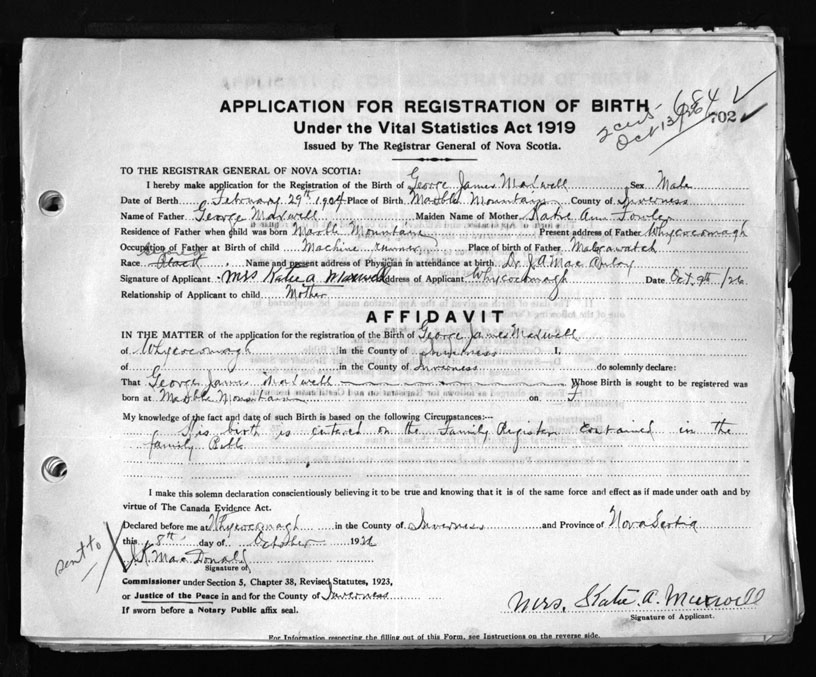 APPLICATION FOR REGISTRATION OF BIRTH
684
702
Oct 13/26
Under the Vital Statistics Act 1919
Issued by The Registrar General of Nova Scotia.
TO THE REGISTRAR GENERAL OF NOVA SCOTIA:
I hereby make application for the Registration of the Birth of George James Maxwell Sex Male
Date of Birth February 29th 1904 Place of Birth Marble Mountain County of Inverness
Name of Father George Maxwell Maiden Name of Mother Katie Ann Fowler
Residence of Father when child was born Marble Mountain Present address of Father Whycocomagh
Occupation of Father at Birth of child Machine runner Place of birth of Father Malagawatch
Race Name and present address of Physician in attendance at birth Dr. J A MacAulay
Signature of Applicant Mrs Katie A Maxwell Address of Applicant Whycocomagh Date Oct. 9th /26
Relationship of Applicant to child Mother
AFFIDAVIT
IN THE MATTER of the application for the registration of the Birth of George James Maxwell
of Whycocomagh in the County of Inverness I,
of in the County of Inverness do solemnly declare:
That George James Maxwell Whose Birth is sought to be registered was
born at Marble Mountain on
My knowledge of the fact and date of such Birth is based on the following Circumstances:--
His birth is entered on the Family Register contained in the
family Bible
I make this solemn declaration conscientiously believing it to be true and knowing that it is of the same force and effect as if made under oath and by
virtue of The Canada Evidence Act.
Declared before me at Whycocomagh in the County of Inverness and Province of Nova Scotia
this 8th day of October 192
sent to
MacDonald
Signature of
Commissioner under Section 5, Chapter 38, Revised Statutes, 1923,
or Justice of the Peace in and for the County of Inverness
If sworn before a Notary Public affix seal.
Mrs. Katie A. Maxwell
Signature of Applicant.
For Information respecting the filling out of this Form, see Instructions on the reverse side.